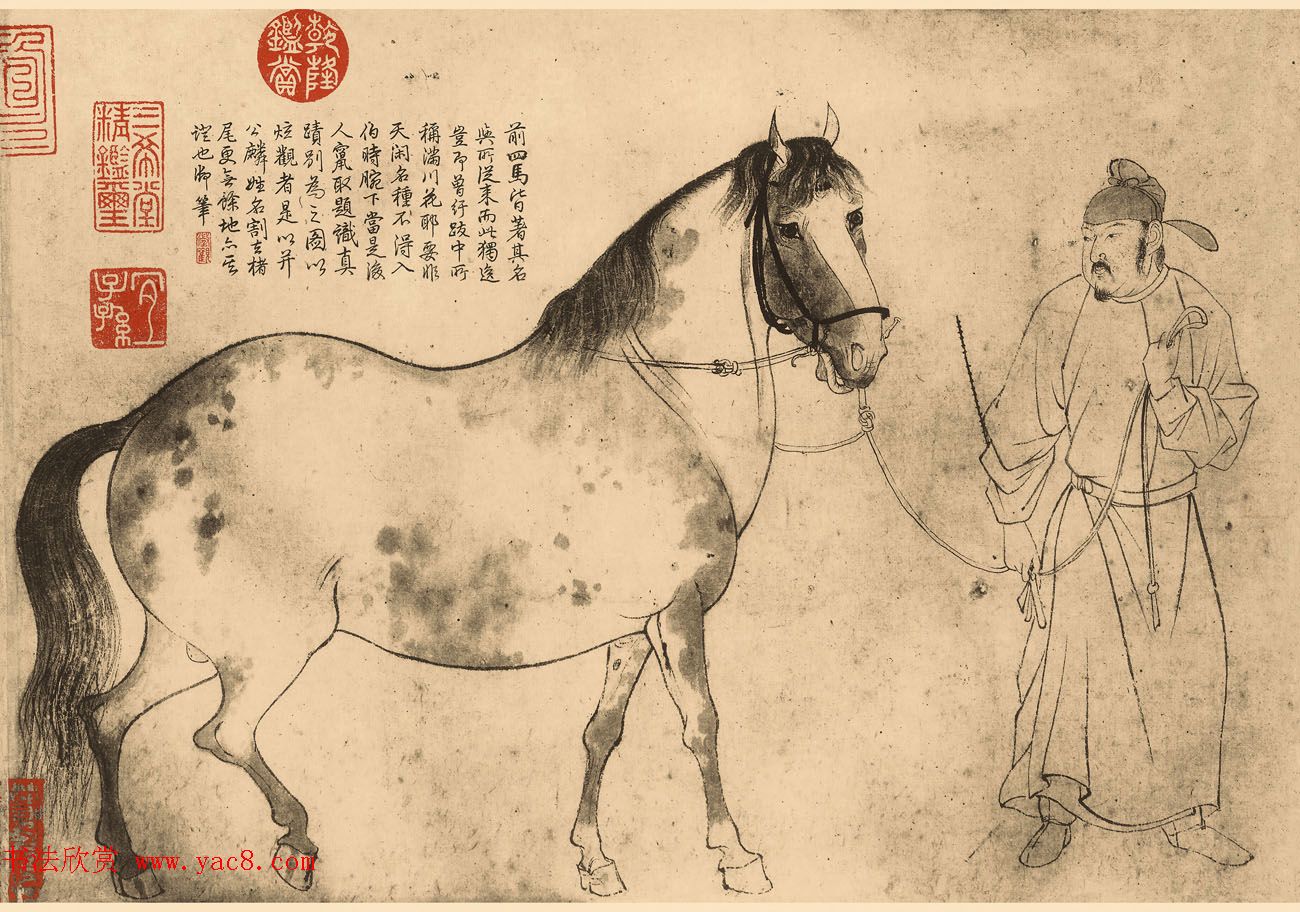 前四馬皆著其名
與所從來而此獨逸
豈即曾紆跋中所
稱滿川花耶要非
天闲名種不得入
伯時腕下當是後
人竄取題識真
蹟別為之圖以
炫觀者是以并
公麟姓名割去楮
尾更無餘地亦其
證也御筆
乾隆
鑑賞
三希堂
精鑑璽
宜
子孫
书法欣赏 www.yac8.com